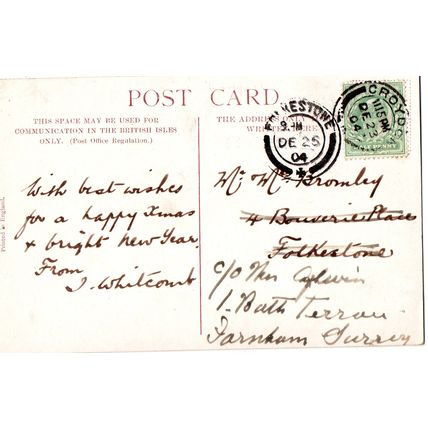 POST CARD.
THIS SPACE MAY BE USED FOR
COMMUNICATION IN THE BRITISH ISLES
ONLY. (Post Office Regulation.)
THE ADDRESS ONLY
WRITTEN HERE
FOLKESTONE
DE 25
04
CROYDON
DE 23
04
PENNY
With best wishes
for a happy Xmas
& bright New Year.
From
J. Whitcomb
Bromley
4 Bouverie Place
Folkestone
c/o
1. Bath Terrace
Farnham Surrey
Printed in England.